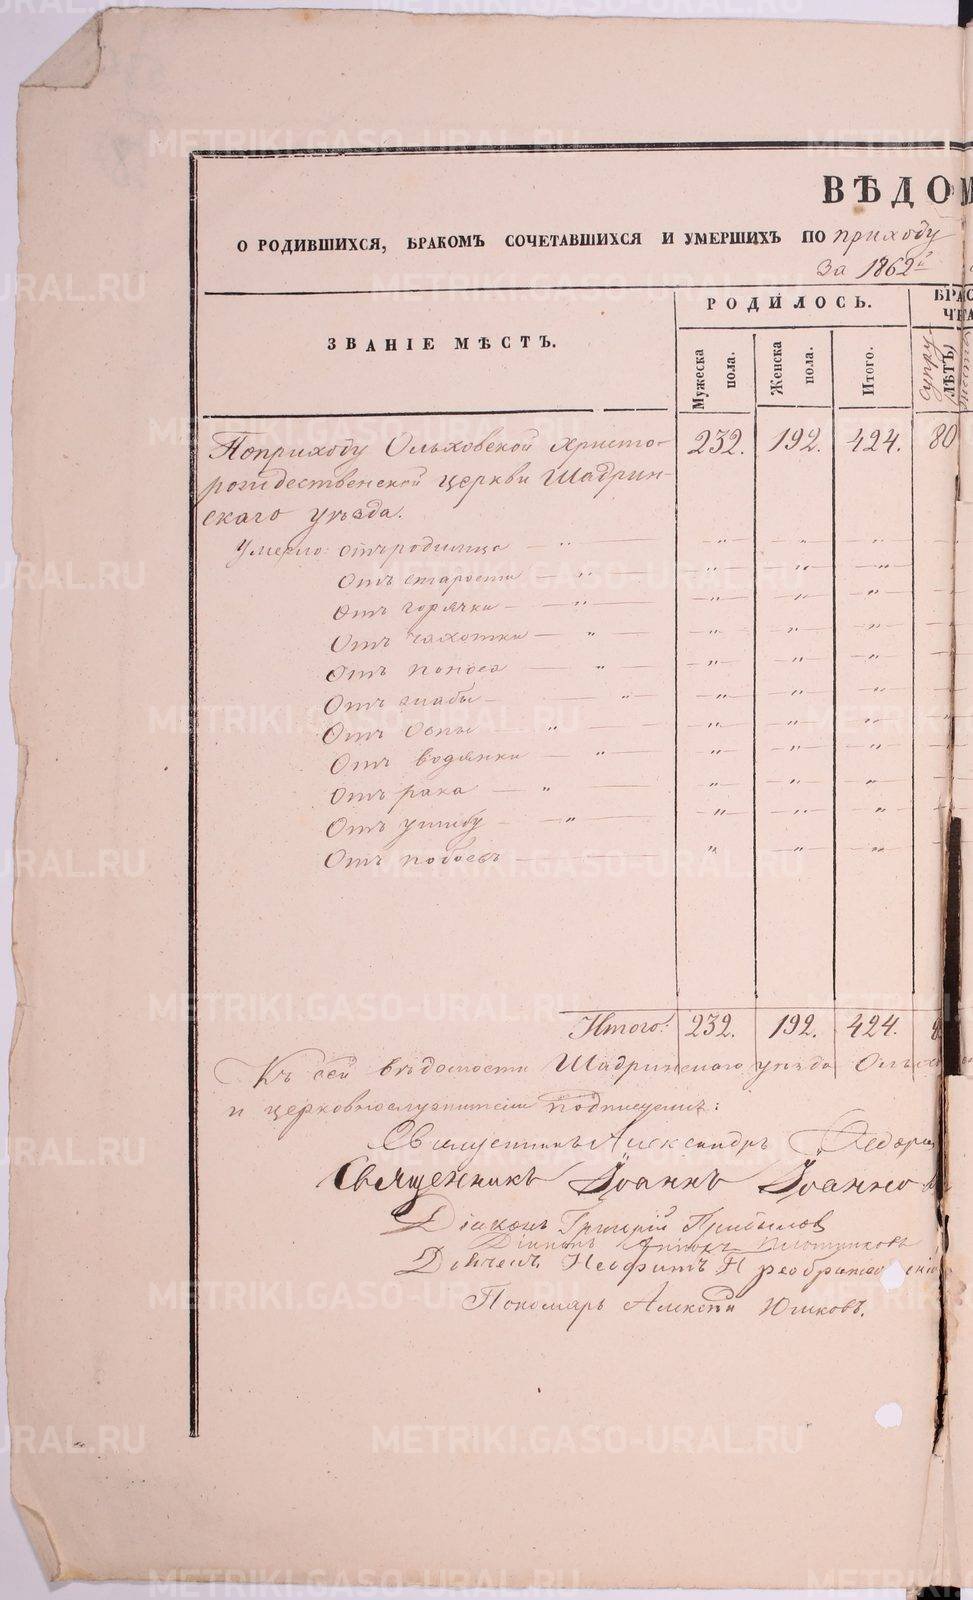 ВѢДОМ
О РОДИВШИХСЯ, БРАКОМЪ СОЧЕТАВШИХСЯ И УМЕРШИХЪ ПО приходу
За 1862й
ЗВАНІЕ МѢСТЪ.
РОДИЛОСЬ.
БРАС
ЧЕТА
Мужеска пола.
Женска пола.
Итого.
супру
ЛѢТЪ
По приходу Ольховской Христо- 232. 192. 424. 80
рождественской церкви Шадрин-
скаго уѣзда.
Умерло: отъ родимца — „ — „ — „ — „
Отъ старости — „ — „ — „ — „
Отъ горячки — „ — „ — „ — „
Отъ чахотки — „ — „ — „ — „
Отъ поноса — „ — „ — „ — „
Отъ жабы — „ — „ — „ — „
Отъ Оспы „ — „ — „ — „
Отъ водянки „ — „ — „ — „
Отъ рака — „ — „ — „ — „
Отъ ушибу — „ — „ — „ — „
Отъ побоевъ — „ — „ — „
Итого: 232. 192. 424. 8
Къ сей вѣдомости Шадринскаго уѣзда Ольхо
и церковнослужители подписуемъ:
Священникъ Александръ Ѳедоров
Священникъ Іоаннъ Іоанно
Діаконъ Григорій Прибылов
Діаконъ Плотниковъ
Дьячекъ Неофитъ Преображенскій
Пономарь Алексѣй Юшковъ.
METRIKI.GASO-URAL.RU